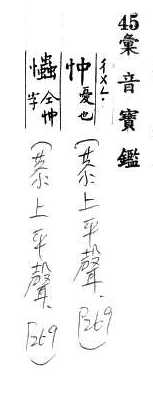 45彙音寶鑑
ㄔㄨㄥ
忡 憂也 (恭上平聲. P269)
仝忡字 (恭上平聲. P269)